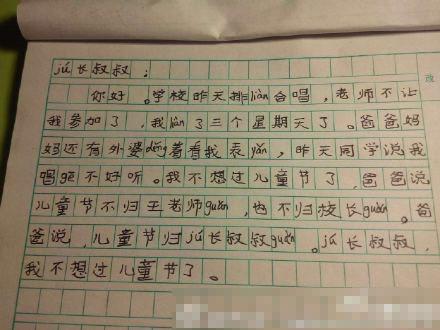 jú长叔叔：
你好。学校昨天排liàn合唱，老师不让
我参加了，我liàn了三个星期天了。爸爸妈
妈还有外婆děng着看我表yǎn，昨天同学说我
唱gē不好听。我不想过儿童节了，爸爸说
儿童节不归王老师guǎn，也不归校长guǎn。爸
爸说，儿童节归jú长叔叔guǎn。jú长叔叔，
我不想过儿童节了。
改